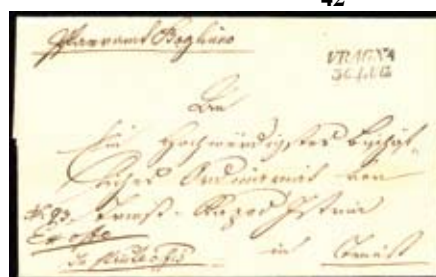 42
Pfarramt Bogliuno
VRAGNA
30 AUG
An
Ein Hochwürdigstes Bischöf-
liches Ordinariat von
Triest-Kapod'Istria
Ex offo
in Triest